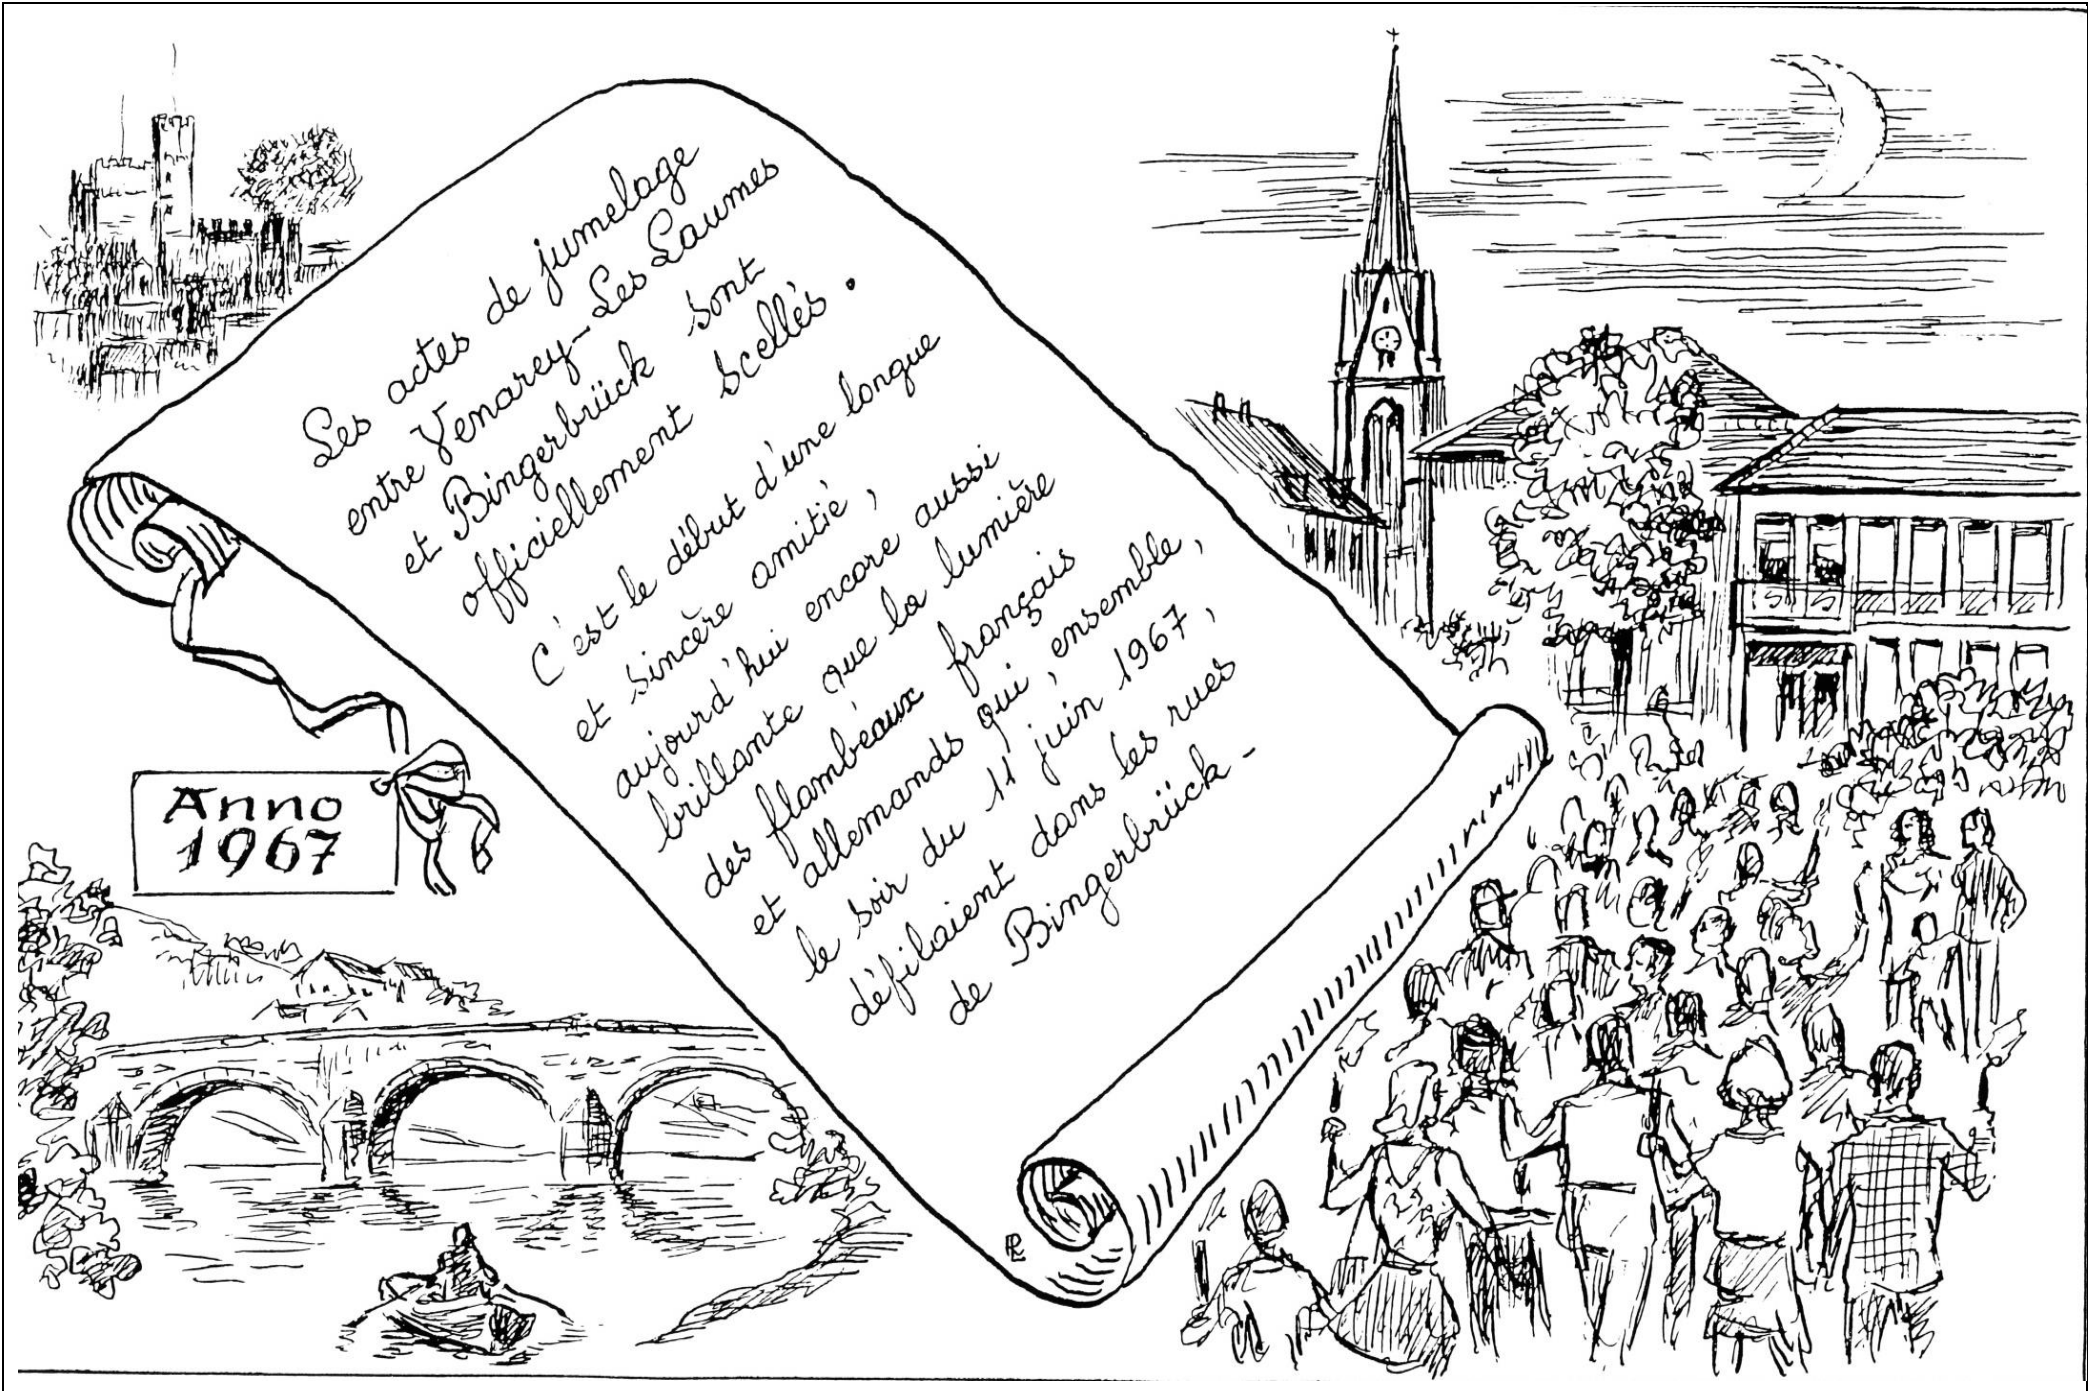 Les actes de jumelage
entre Venarey-Les Laumes
et Bingerbrück sont
officiellement scellés.
C'est le début d'une longue
et sincère amitié,
aujourd'hui encore aussi
brillante que la lumière
des flambeaux français
et allemands qui, ensemble,
le soir du 11 juin 1967,
défilaient dans les rues
de Bingerbrück-
Anno
1967